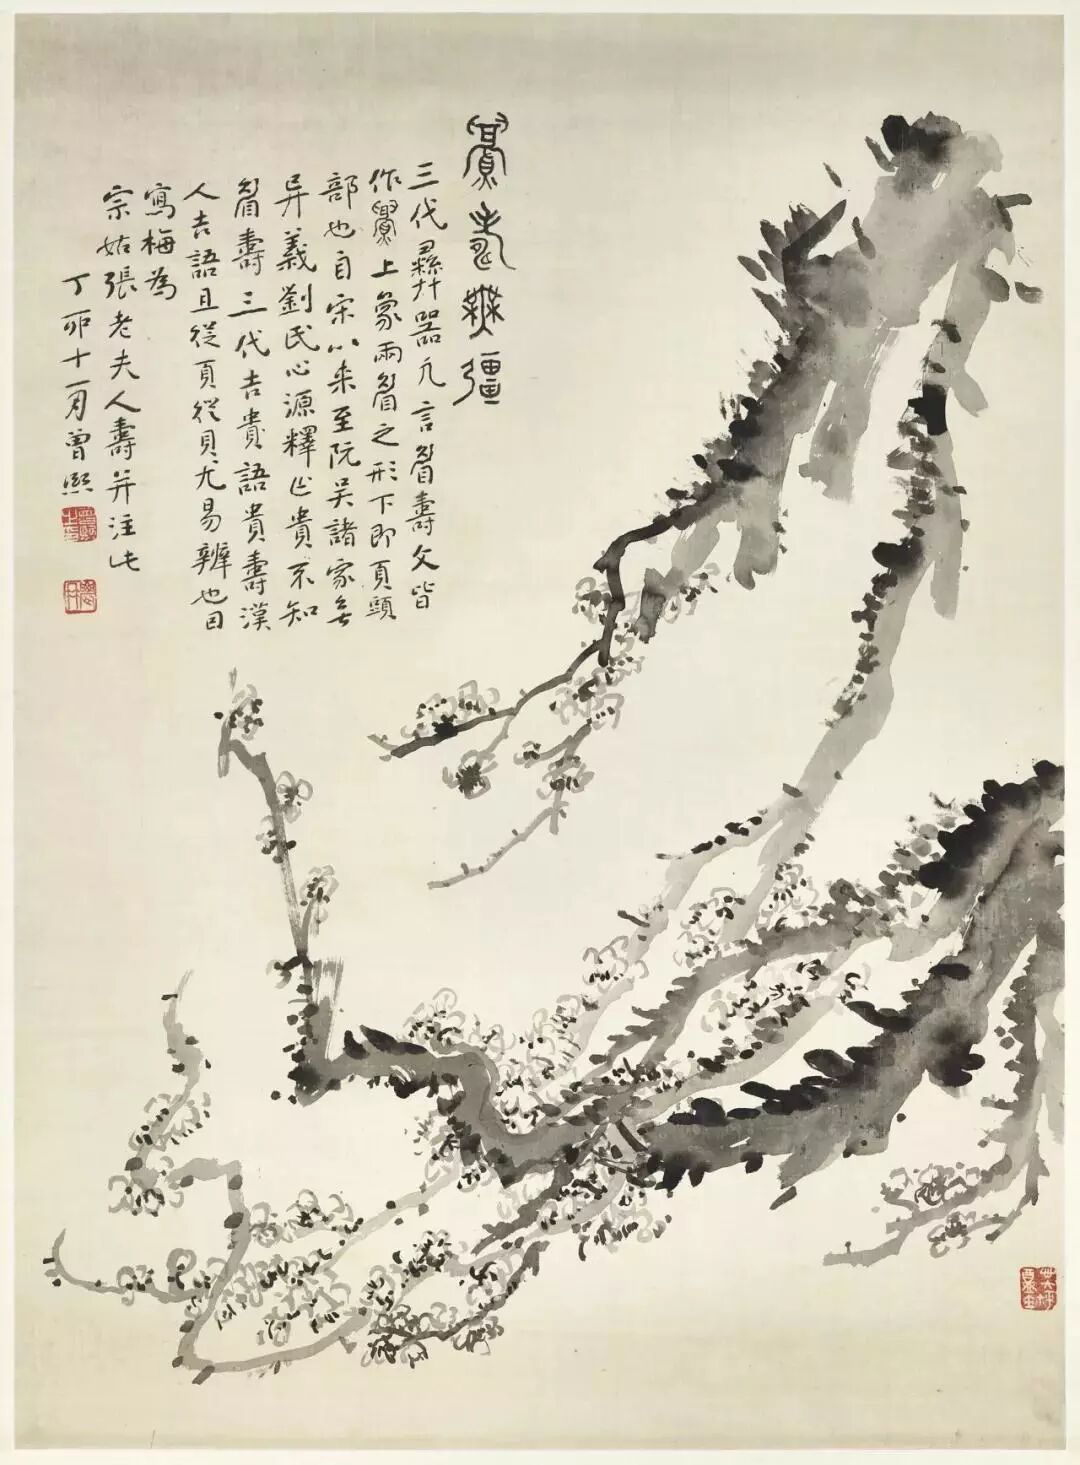 眉壽無疆
三代彝器凡言眉壽文皆
作上象兩眉之形下即頁頭
部也自宋以来至阮吴諸家无
异義劉氏心源釋貴不知
眉壽三代吉貴語貴壽漢
人吉語且從頁從貝尤易辨也因
寫梅為
宗姑張老夫人壽并注此
丁卯十一月曾熙